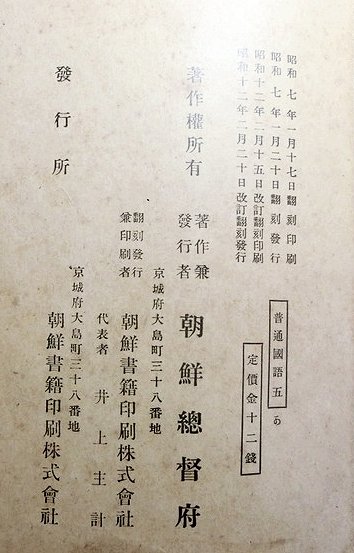 昭和七年一月十七日翻刻印刷
昭和七年一月二十日翻刻發行
昭和十二年二月十五日改訂翻刻印刷
昭和十二年二月二十日改訂翻刻發行
普通國語五
定價金十二錢
著作權所有
著作兼發行者
朝鮮總督府
京城府大島町三十八番地
翻刻發行兼印刷者
朝鮮書籍印刷株式會社
代表者 井上主計
京城府大島町三十八番地
發行所
朝鮮書籍印刷株式會社